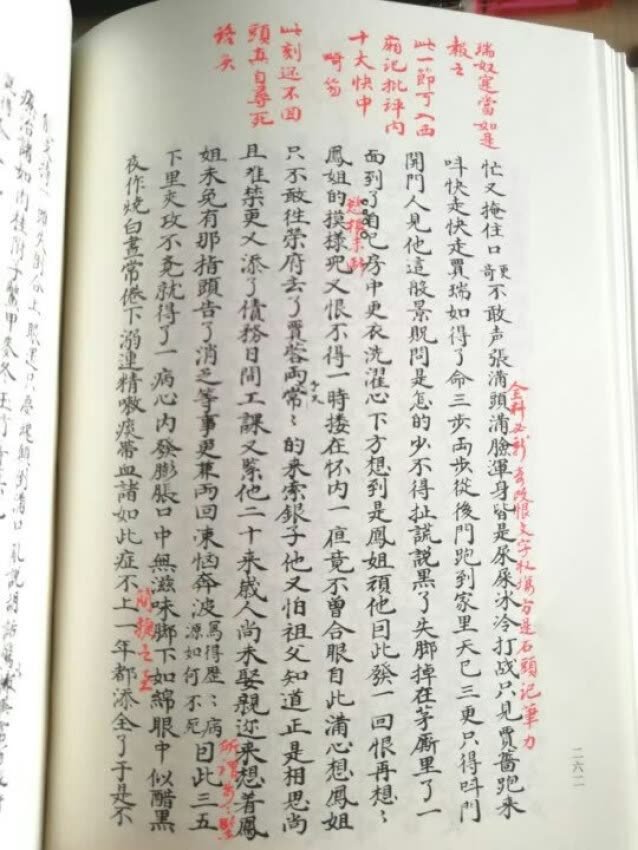 瑞奴寔當如是
報之
此一節可入西
廂記批評内
十大快中
畸笏
此刻还不回
頭真自尋死
路矣
忙又掩住口更奇不敢声張滿頭滿臉渾身皆是尿屎冰冷打战只見賈薔跑来
全料必新奇改恨文字收拾方是石頭記筆力
呌快走快走賈瑞如得了命三步両步從後門跑到家里天已三更只得呌門
開門人見他這般景况問是怎的少不得扯謊說黑了失脚掉在茅厠里了一
面到了自己房中更衣洗濯心下方想到是鳳姐頑他因此發一回恨再想〻
鳳姐的摸樣児又恨不得一時摟在怀内一亱竟不曾合眼自此滿心想鳳姐
只不敢徃榮府去了賈蓉両常〻的来索銀子他又怕祖父知道正是相思尚
且难禁更又添了債務日間工課又緊他二十来歲人尚未娶親迩来想着鳳
姐未免有那指頭告了消乏等事更兼両回凍惱奔波寫得歷〻病源如何不死因此三五
所謂步〻緊
下里夹攻不竟就得了一病心内發膨脹口中無滋味脚下如綿眼中似醋黑
簡捷之至
夜作燒白晝常倦下溺連精嗽痰帶血諸如此症不上一年都添全了于是不
二六二